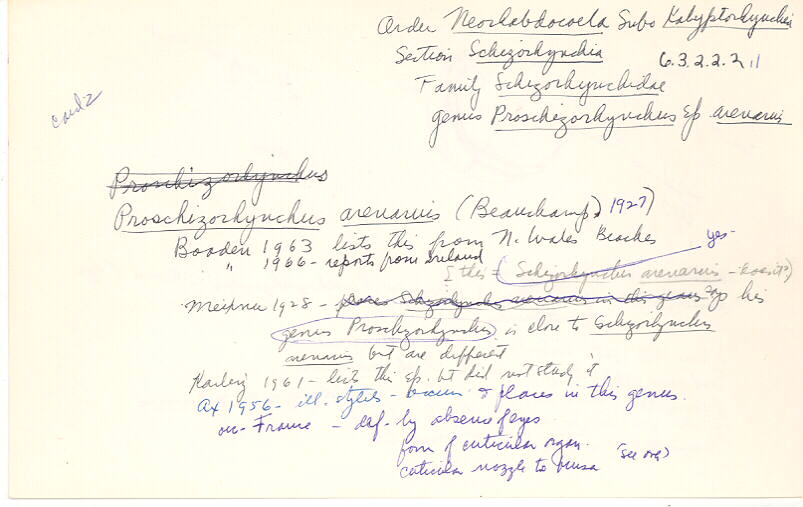 Order Neorhabdocoela Subo Kalyptorhynchia
Section Schizorhynchia 6.3.2.2.2.11
Family Schizorhynchidae
genus Proschizorhynchus sp arenarius
card 2
Proschizorhynchus
Proschizorhynchus arenarius (Beauchamp, 1927)
Boaden 1963 lists this from N. Wales Beaches
" 1966 - reports from Ireland
yes-
[this = (Schizorhynchus arenarius - doesn't?)
Meixner 1928 - places Schizorhynchus arenarius in this genus his
genus Proschizorhynchus is close to Schizorhynchus
arenarius but are different
Karling 1961 - lists this sp. but did not study it
Ax 1956 - ill. stylets - occurr & places in this genus.
occ - France - def. by absence of eyes
form of cuticular organ. (see over)
cuticular nozzle to bursa